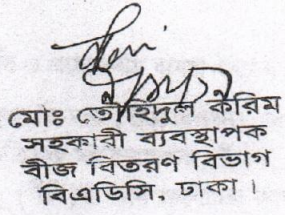 মোঃ তৌহিদুল করিম
সহকারী ব্যবস্থাপক
বীজ বিতরণ বিভাগ
বিএডিসি, ঢাকা।